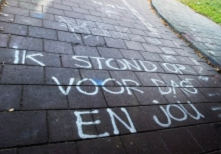 IK STOND OP
VOOR DAG
EN JOU